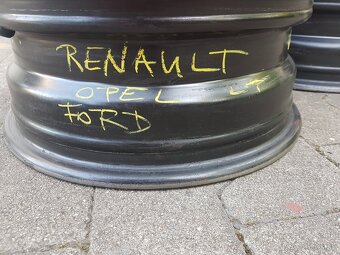 RENAULT
OPEL LT
FORD